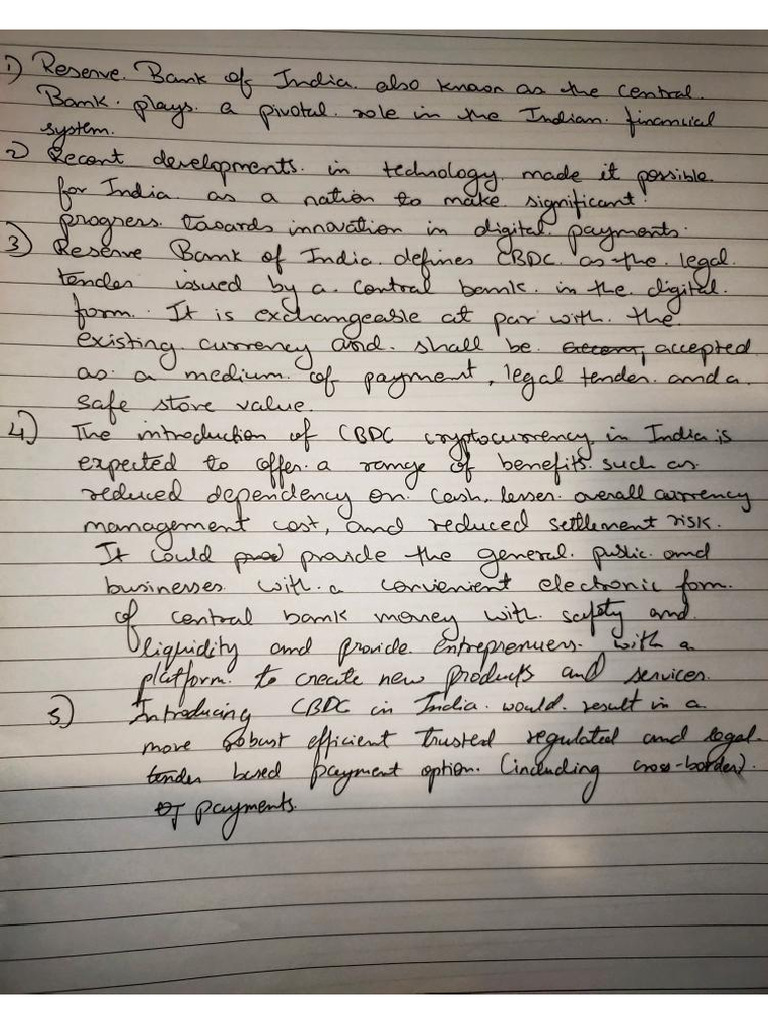 1) Reserve Bank of India also known as the central
Bank plays a pivotal role in the Indian financial
system.
2) Recent developments in technology made it possible
for India as a nation to make significant
progress towards innovation in digital payments.
3) Reserve Bank of India defines CBDC as the legal
tender issued by a central bank in the digital
form. It is exchangeable at par with the
existing currency and shall be accepted
as a medium of payment, legal tender and a
safe store value.
4) The introduction of CBDC cryptocurrency in India is
expected to offer a range of benefits such as
reduced dependency on cash, lesser overall currency
management cost, and reduced settlement risk.
It could provide the general public and
businesses with a convienient electronic form
of central bank money with safety and
liquidity and provide entreprenuers with a
platform to create new products and services.
5) Introducing CBDC in India would result in a
more robust efficient trusted regulated and legal
tender based payment option (including cross-border)
payments.